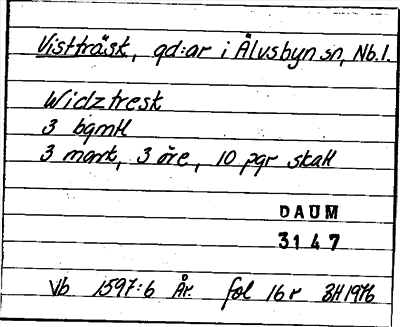 Vistträsk, gd:ar i Älvsbyn sn, Nb.l.
Widztresk
3 bgmtl
3 mark, 3 öre, 10 pgr skatt
DAUM
3147
Vb 1597:6 År. fol 16 r BH1976